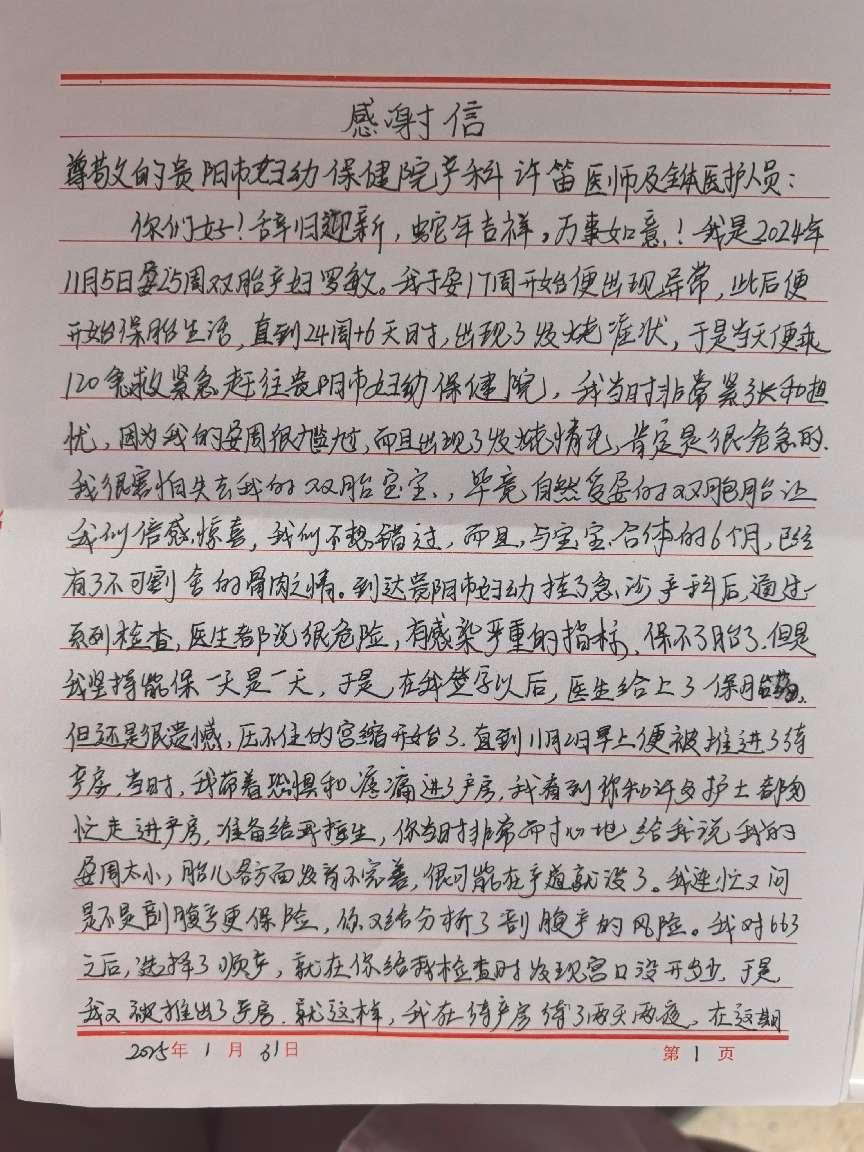 感谢信
尊敬的贵阳市妇幼保健院产科许笛医师及全体医护人员：
你们好！辞旧迎新，蛇年吉祥，万事如意！我是2024年
11月5日孕25周双胎产妇罗敏。我于孕17周开始便出现异常，此后便
开始保胎生活，直到24周+6天时，出现了发烧症状，于是当天便乘
120急救紧急赶往贵阳市妇幼保健院，我当时非常紧张和担
忧，因为我的孕周很尴尬，而且出现了发烧情况，肯定是很危急的．
我很害怕失去我的双胎宝宝．，毕竟自然受孕的双胞胎让
我们倍感惊喜，我们不想错过，而且，与宝宝合体的6个月，已经
有了不可割舍的骨肉之情。到达贵阳市妇幼挂了急诊产科后，通过一
系列检查，医生都说很危险，有感染严重的指标，保不了胎了．但是
我坚持能保一天是一天，于是，在我签字以后，医生给上了保胎药．
但还是很遗憾，压不住的宫缩开始了．直到11月2日早上便被推进了待
产房，当时，我带着恐惧和疼痛进了产房，我看到你和许多护士都匆
忙走进产房，准备给我接生，你当时非常耐心地给我说我的
孕周太小，胎儿各方面发育不完善，很可能在产道就没了。我连忙又问
是不是剖腹产更保险，你又给分析了剖腹产的风险。我对
之后，选择了顺产，就在你给我检查时发现宫口没开多少．于是
我又被推出了产房．就这样，我在待产房待了两天两夜，在这期
2025年1月31日
第1页